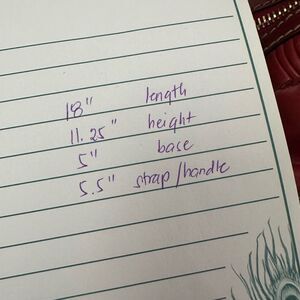 18" length
11.25" height
5" base
5.5" strap/handle